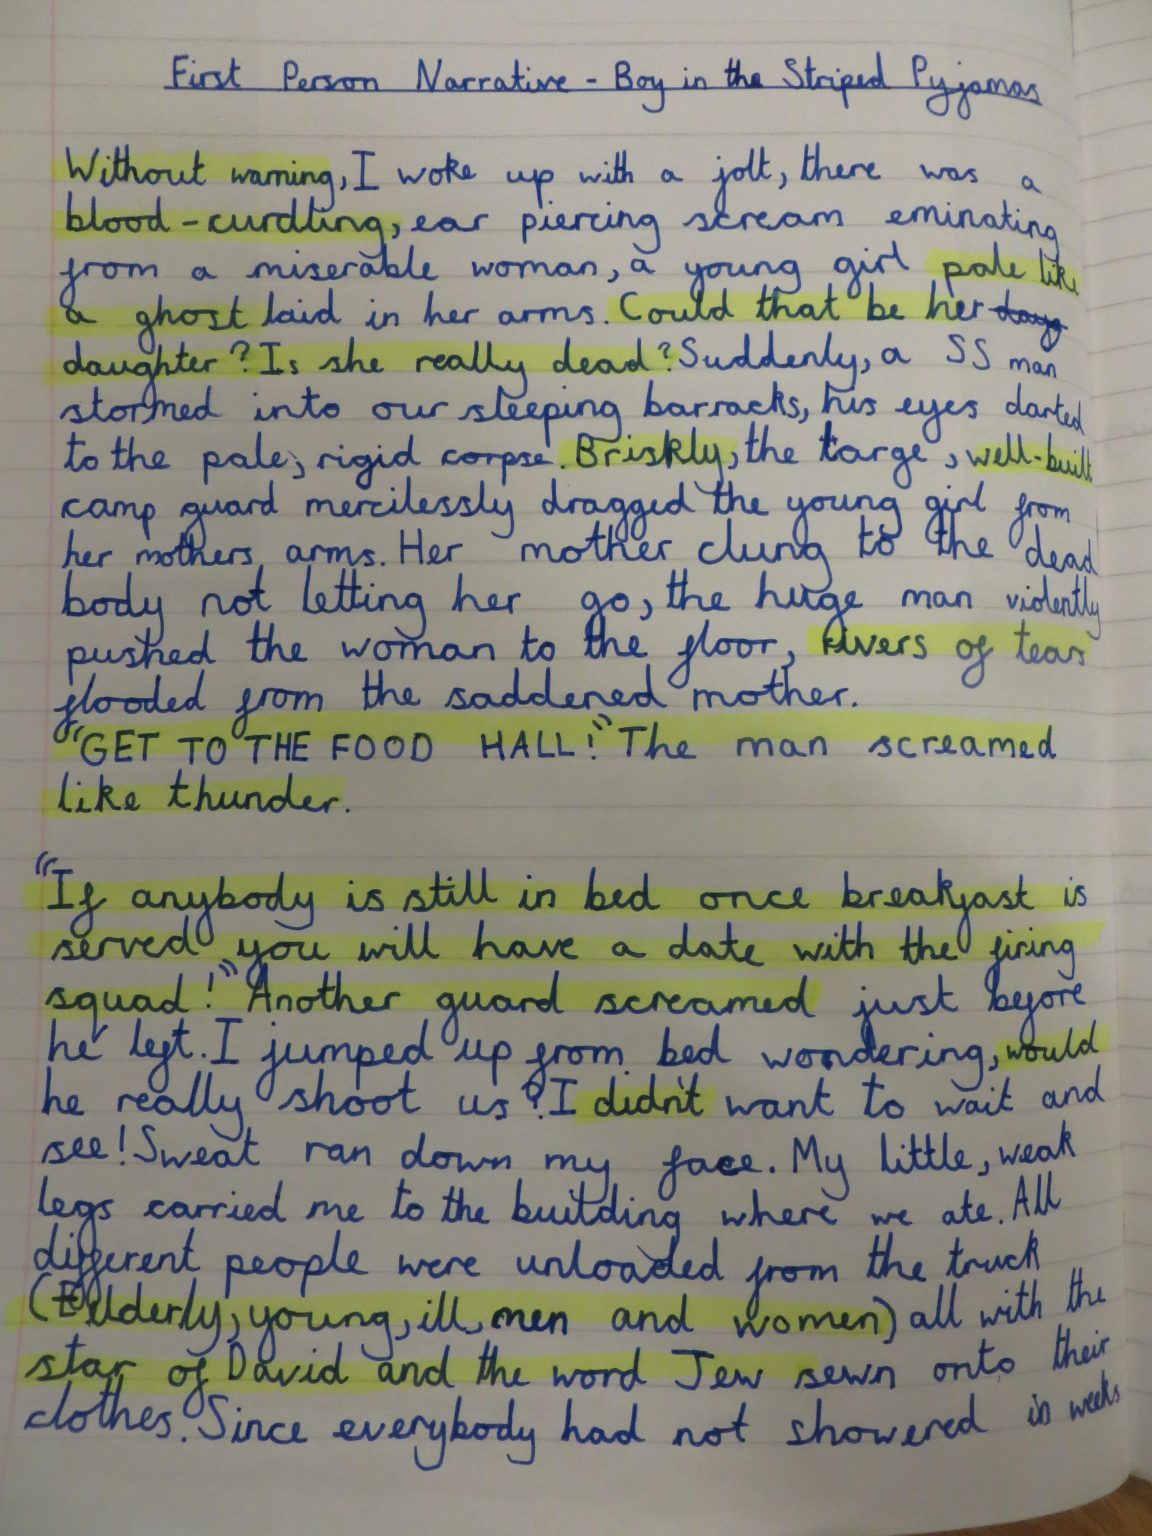 First Person Narrative - Boy in the Striped Pyjamas
Without warning, I woke up with a jolt, there was a
blood-curdling, ear piercing scream eminating
from a miserable woman, a young girl pale like
a ghost laid in her arms. Could that be her
daughter? Is she really dead? Suddenly, a SS man
stormed into our sleeping barracks, his eyes darted
to the pale, rigid corpse. Briskly, the large, well-built
camp guard mercilessly dragged the young girl from
her mothers arms. Her mother clung to the dead
body not letting her go, the huge man violently
pushed the woman to the floor, rivers of tears
flooded from the saddened mother.
"GET TO THE FOOD HALL!" The man screamed
like thunder.
"If anybody is still in bed once breakfast is
served you will have a date with the firing
squad!" Another guard screamed just before
he left. I jumped up from bed wondering, would
he really shoot us? I didn't want to wait and
see! Sweat ran down my face. My little, weak
legs carried me to the building where we ate. All
different people were unloaded from the truck
(Eilderly, young, ill, men and women) all with the
star of David and the word Jew sewn onto their
clothes. Since everybody had not showered in weeks